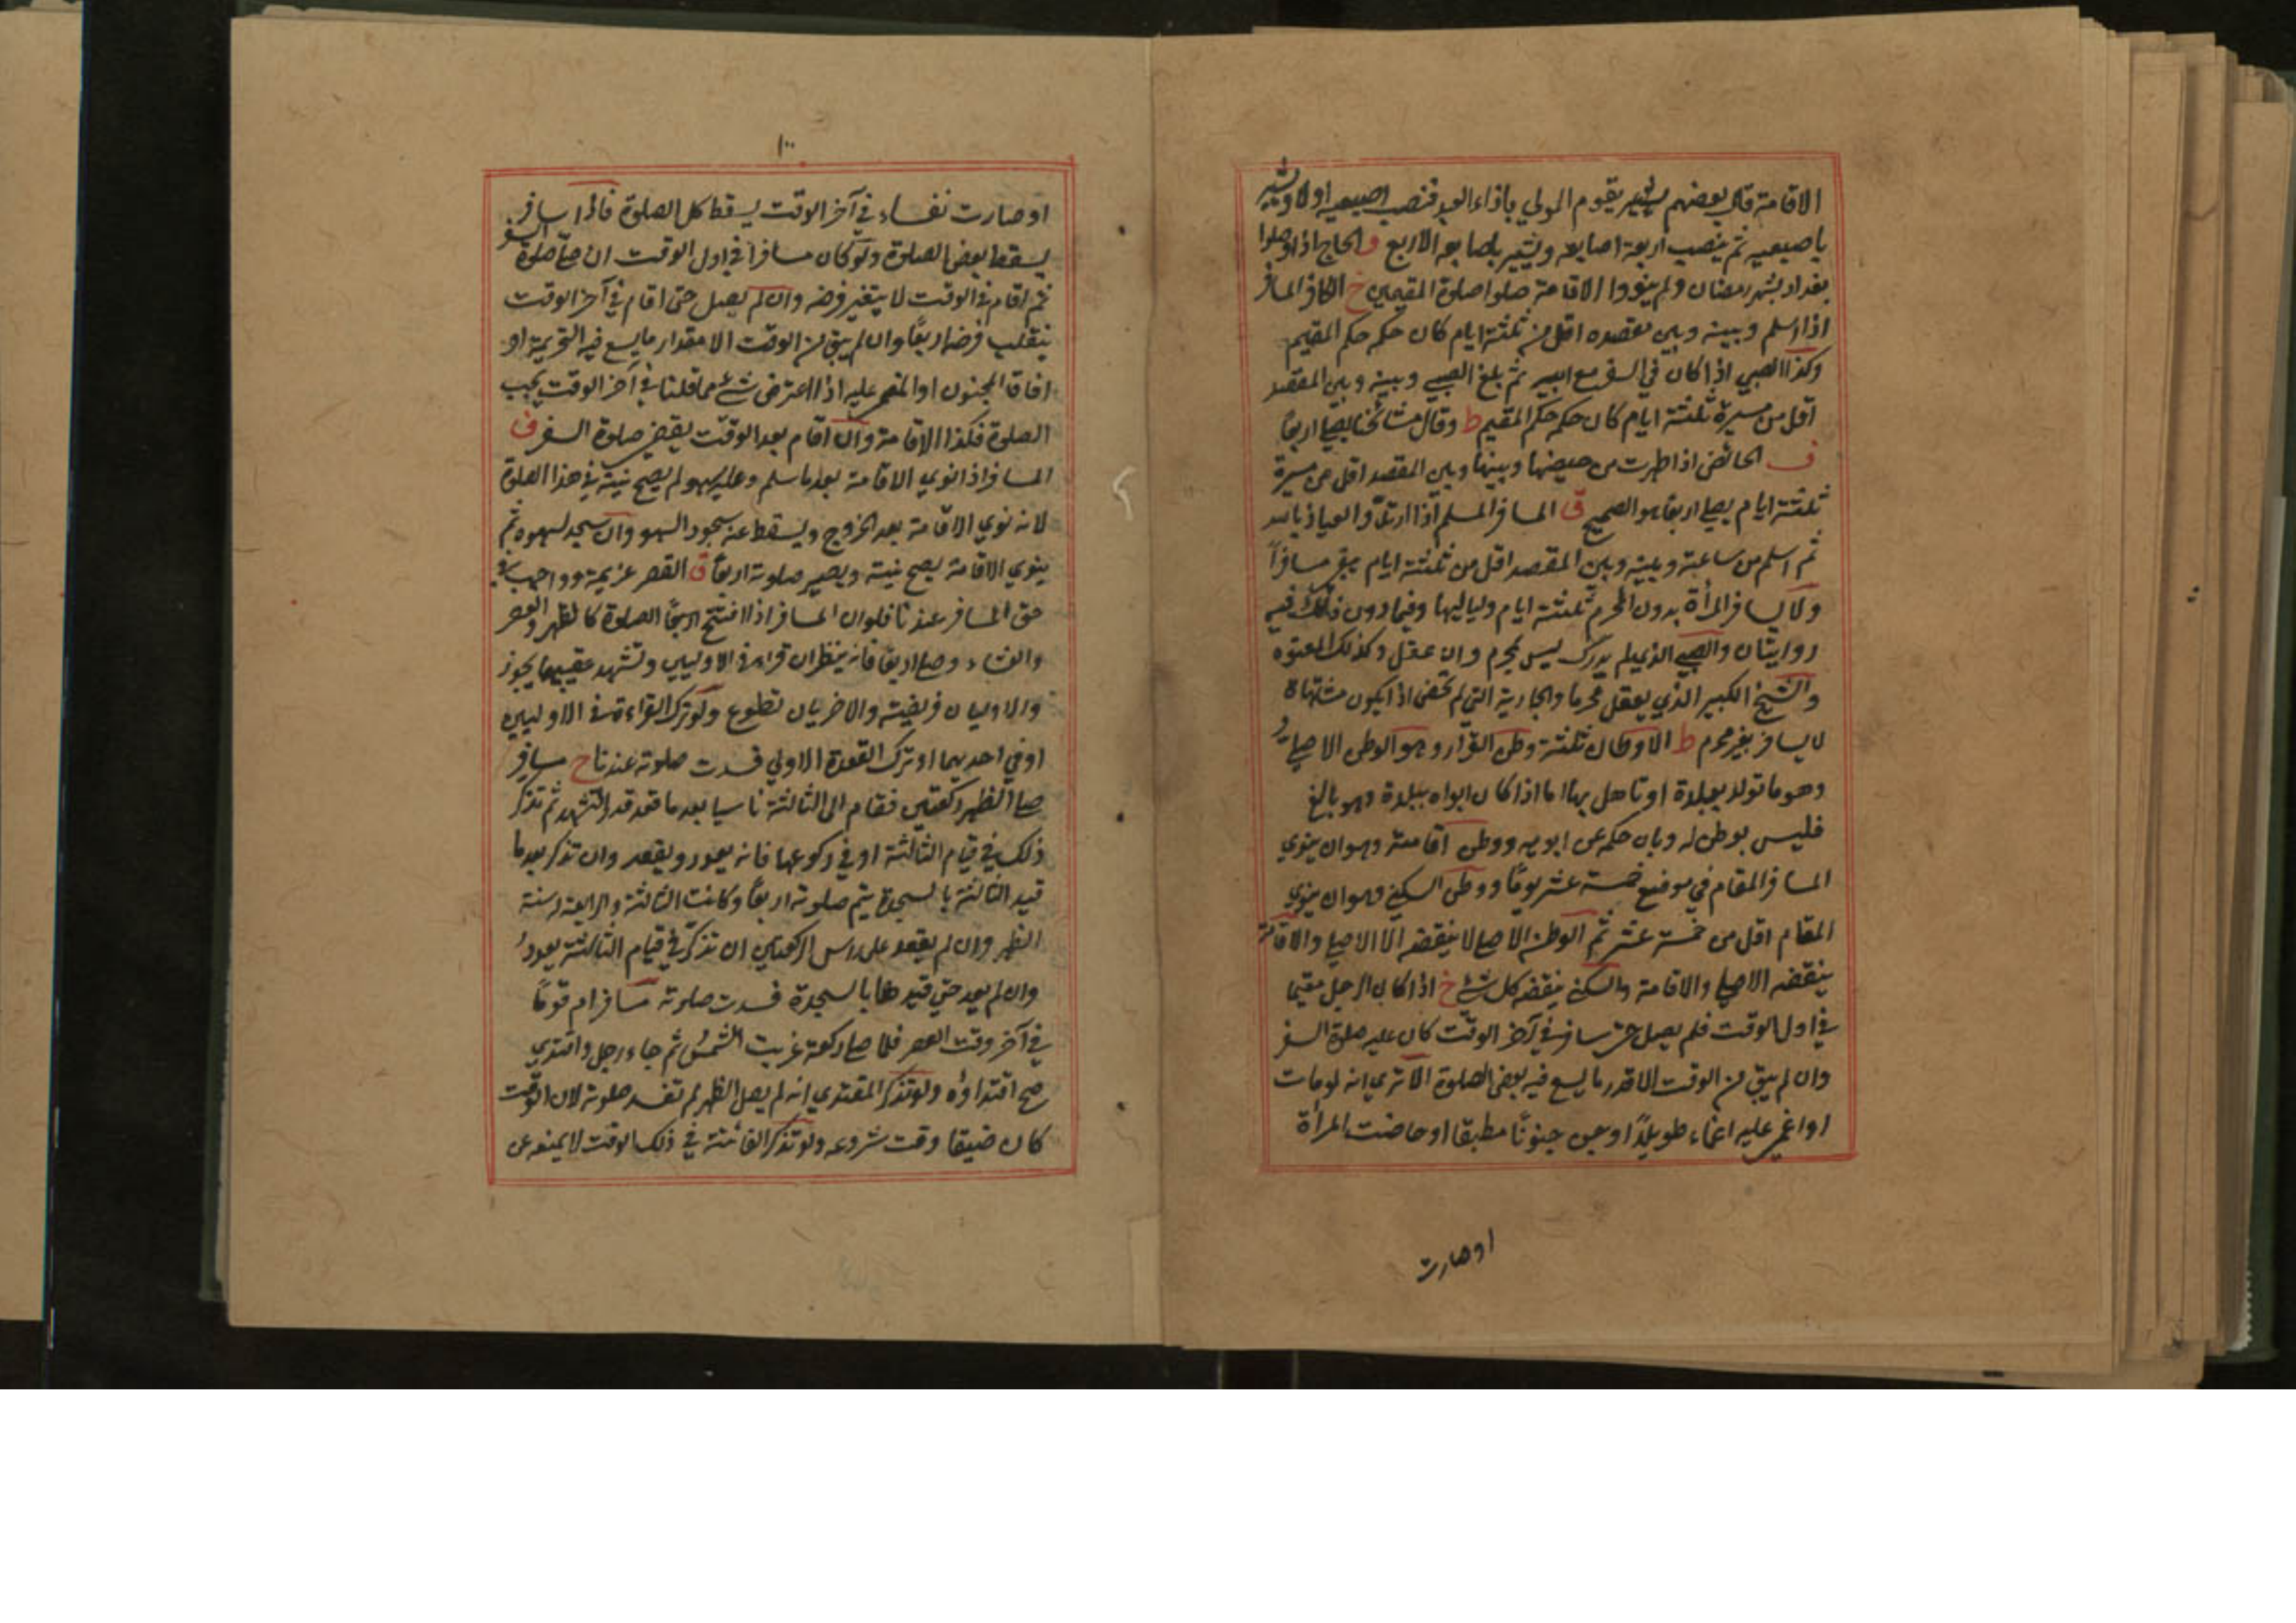 الاقامة قال بعضهم يقوم المولي باذاء العبد فنصب اصبعيه اولا ويشير
باصبعيه ثم ينصب اربعة اصابعه ويشير باصابعه الاربع ق الحاج اذا وصلوا
بغداد بشهر رمضان ولم ينووا الاقامة صلوا صلوة المقيمين خ الكافر المسافر
اذا اسلم وبينه وبين مقصده اقل من ثلثة ايام كان حكمه حكم المقيم
وكذا الصبي اذا كان في السفر مع ابيه ثم بلغ الصبي وبينه وبين المقصد
اقل من مسيرة ثلثة ايام كان حكمه حكم المقيم ط وقال مشائخنا يصلي اربعا
ف الحائض اذا طهرت من حيضها وبينها وبين المقصد اقل من مسيرة
ثلثة ايام يصلي اربعا هو الصحيح ق المسافر المسلم اذا ارتد والعياذ بالله
ثم اسلم من ساعته وبينه وبين المقصد اقل من ثلثة ايام يبقي مسافراً
ولا يسافر المرأة بدون المحرم ثلثة ايام ولياليها وفيما دون ذلك فيه
روايتان والصبي الذي لم يدرك ليس بمحرم وان عقل وكذلك المعتوه
والشيخ الكبير الذي يعقل محرما والجارية التي لم تحض اذا يكون مشتهاة
لا يسافر بغير محرم ط الاوطان ثلثة وطن القرار وهو الوطن الاصلي
وهو ما تولد ببلدة او تاهل بها اما اذا كان ابواه ببلدة وهو بالغ
فليس بوطن له وبان حكمه عن ابويه ووطن اقامة وهو ان ينوي
المسافر المقام في موضع خمسة عشر يومًا ووطن السكني وهو ان ينوي
المقام اقل من خمسة عشر ثم الوطن الاصلي لا ينقضه الا الاصلي والاقامة
ينقضه الاصلي والاقامة والسكني ينقضه كل شئ خ اذا كان الرجل مقيما
في اول الوقت فلم يصل حتى سافر في آخر الوقت كان عليه صلوة السفر
وان لم يبق من الوقت الا قدر ما يسع فيه بعض الصلوة الا تري انه لو مات
او اغمي عليه اغماء طويلاً او جن جنونًا مطبقا او حاضت المرأة
او صارت
١٠٠
او صارت نفساء في آخر الوقت يسقط كل الصلوة فاذا سافر
يسقط بعض الصلوة ولو كان مسافرا في اول الوقت ان صلى صلوة السفر
ثم اقام في الوقت لا يتغير فرضه وان لم يصل حتى اقام في آخر الوقت
ينقلب فرضه اربعًا وان لم يبق من الوقت الا مقدار ما يسع فيه التحريمة او
افاق المجنون او المغمي عليه اذا اعترض شئ مما قلنا في آخر الوقت يجب
الصلوة فكذا الاقامة وان اقام بعد الوقت يقضي صلوة السفر ق
المسافر اذا نوي الاقامة بعد ما سلم وعليه سهو لم يصح نيته في هذا الصلوة
لانه نوي الاقامة بعد الخروج ويسقط عنه سجود السهو وان سجد لسهوه ثم
ينوي الاقامة يصح نيته ويصير صلوته اربعاً ق القصر عزيمة وواجب في
حق المسافر عندنا فلو ان المسافر اذا افتتح اربع الصلوة كالظهر والعصر
والعشاء وصلى اربعا فانه ينظر ان قرا في الاوليين وتشهد عقيبهما يجوز
والاوليان فريضة والاخريان تطوع ولو ترك القراءة في الاوليين
او في احديهما او ترك القعدة الاولي فسدت صلوته عندنا ح مسافر
صلى الظهر ركعتين فقام الى الثالثة ناسيا بعد ما قعد قدر التشهد ثم تذكر
ذلك في قيام الثالثة او في ركوعها فانه يعود ويقعد وان تذكر بعد ما
قيد الثالثة بالسجدة يتم صلوته اربعًا وكانت الثالثة والرابعة سنة
الظهر وان لم يقعد على راس الركعتين ان تذكر في قيام الثالثة يعود
وان لم يعد حتى قيدها بالسجدة فسدت صلوته مسافر ام قومًا
في آخر وقت العصر فلما صلى ركعة غربت الشمس ثم جاء رجل واقتدي
صح اقتداؤه ولو تذكر المقتدي انه لم يصل الظهر لم تفسد صلوته لان الوقت
كان ضيقا وقت شروعه ولو تذكر الفائتة في ذلك الوقت لا يمنعه عن